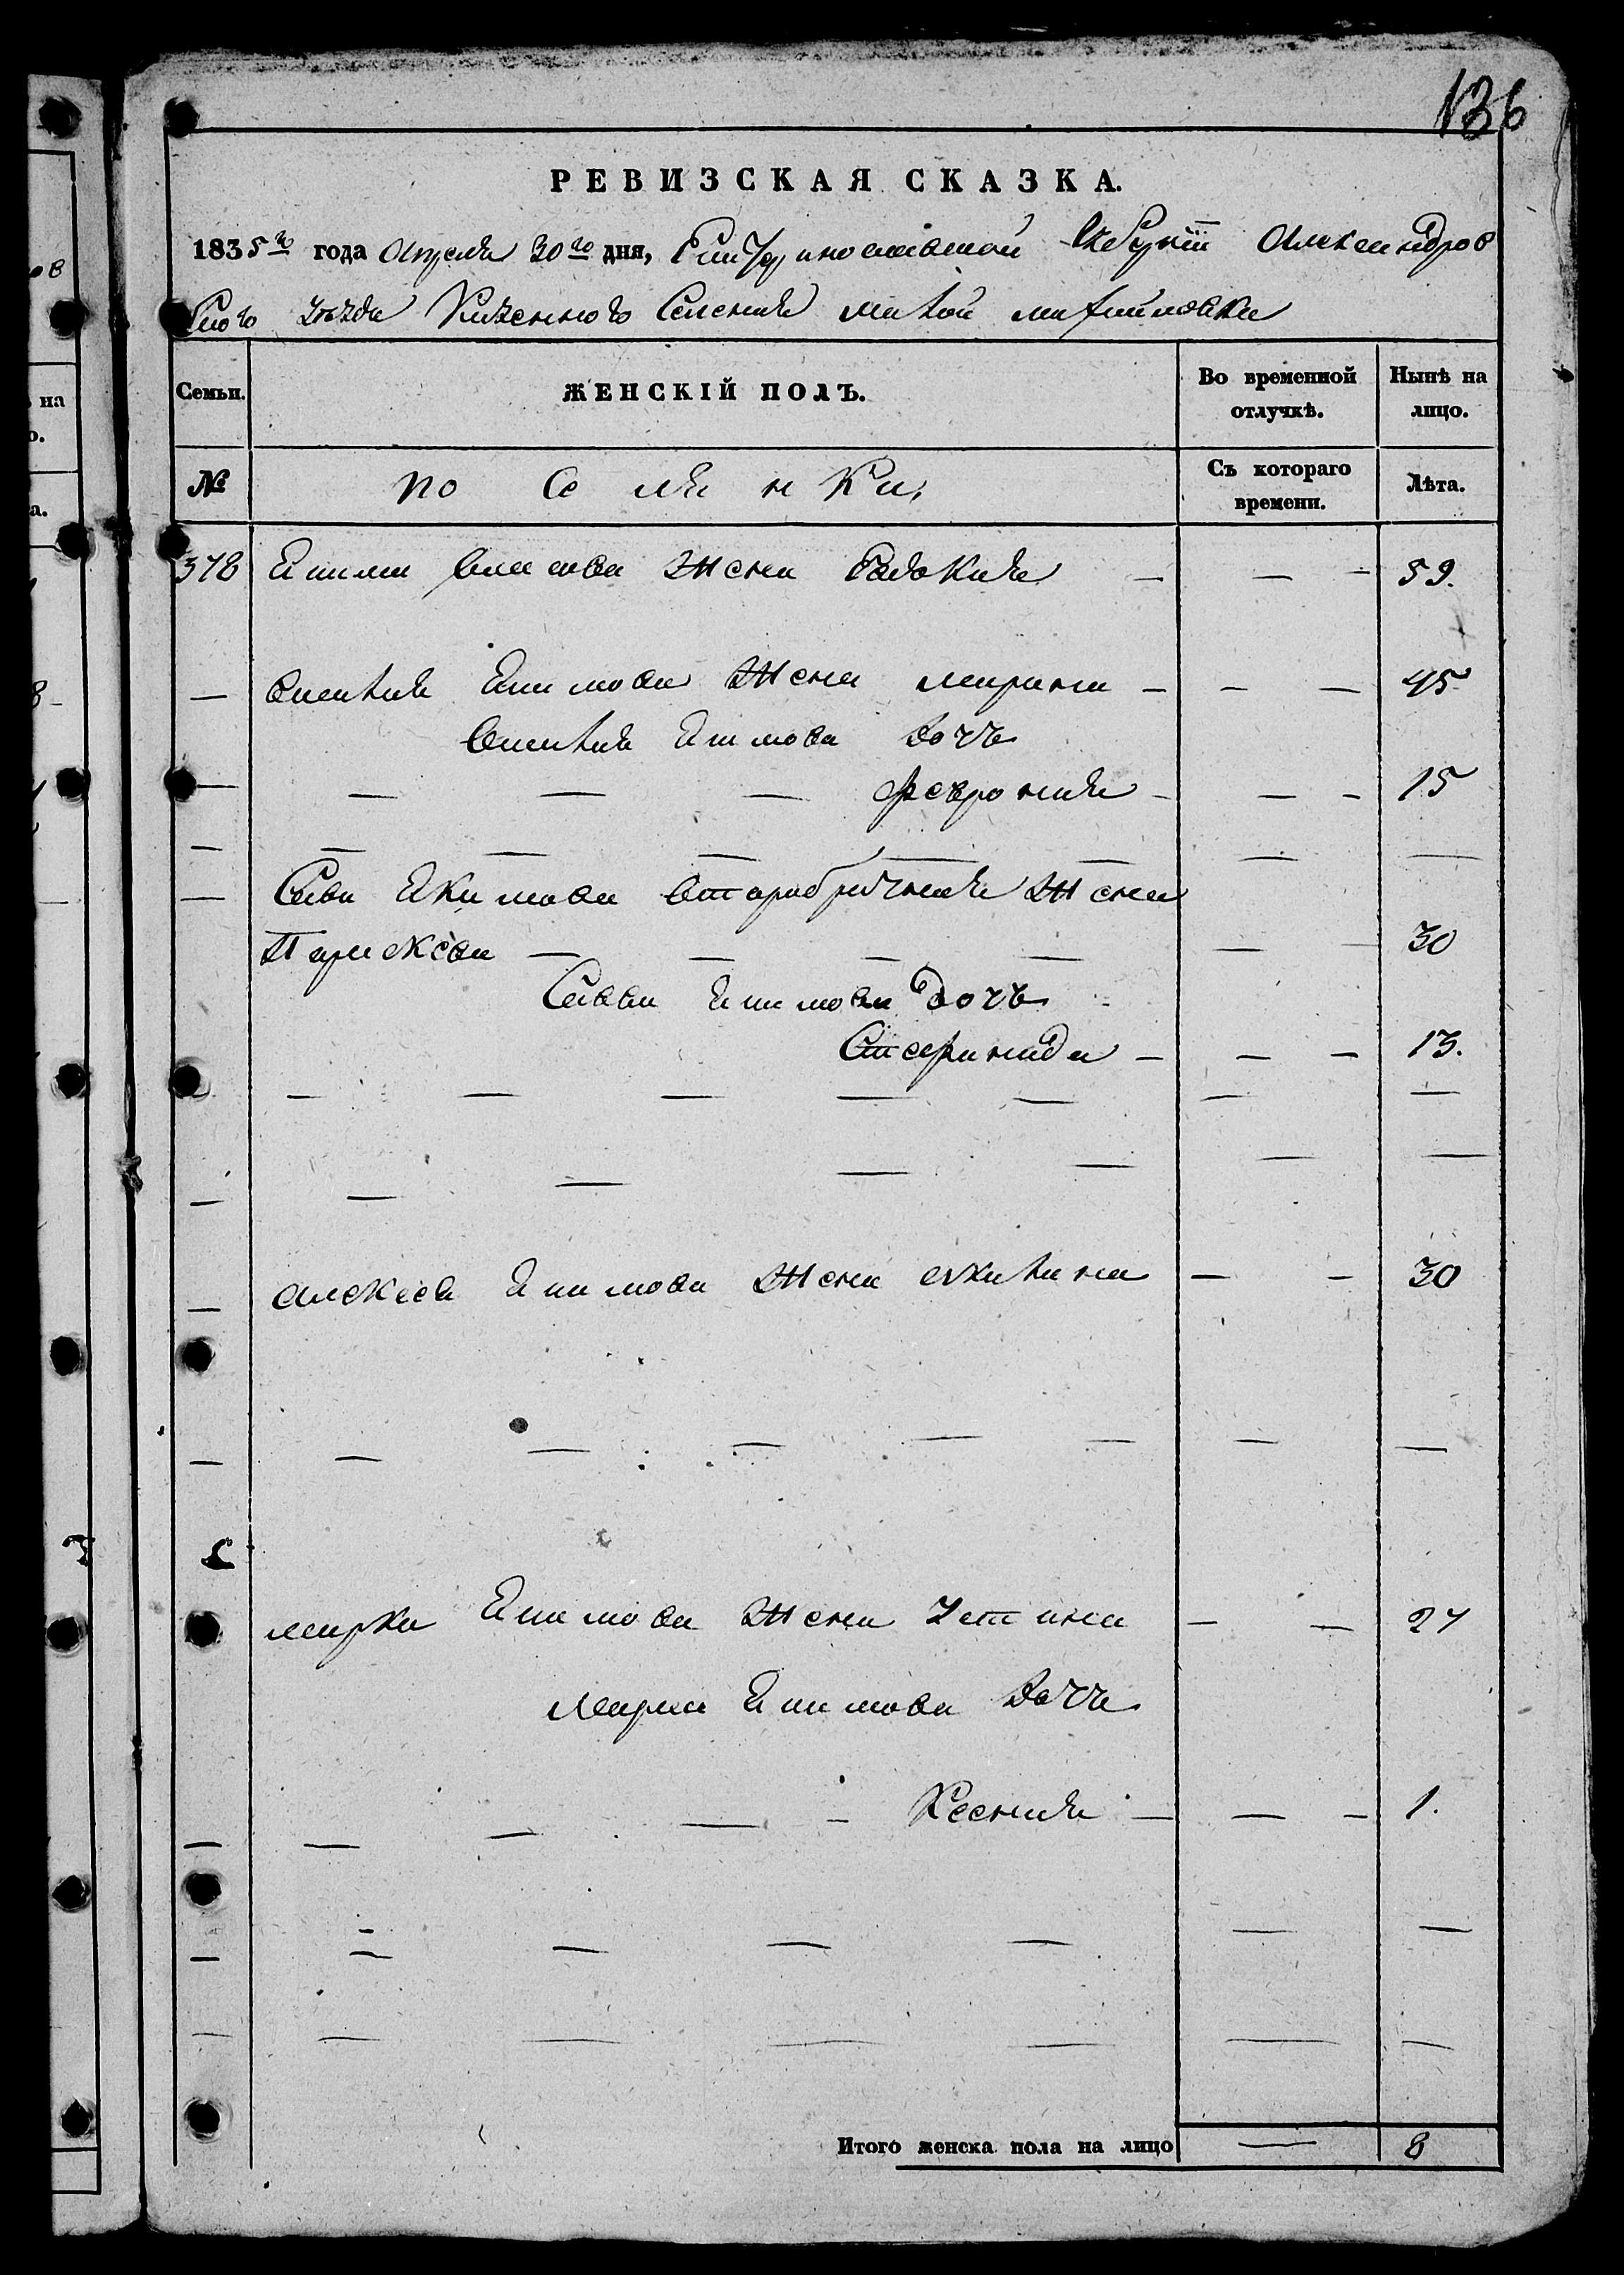 136
РЕВИЗСКАЯ СКАЗКА.
1835го года Апреля 30го дня, Екатеринославской Губернїи Александров
скаго уезда Казенного Селения малой михайловки
Семьи. ЖЕНСКІЙ ПОЛЪ. Во временной отлучкѣ. Нынѣ на лицо.
№ По Се ля н Ки, Съ котораго времени. Лѣта.
378 Екима власова Жена Евдокия — — — 59.
— Жена марина — — — 45
Екимова дочь
— — — — Феврония — — — 15
— — — — — — — —
— Сави Екимова втаробрачная Жена
Парасկева — — — — — — 30
Савви Екимова дочь
— — — 13.
— — — — — — — —
— — — — — — —
— алексея Екимова Жена акилина — — 30
— — — — — — — —
марка Екимова Жена Устина — — 27
Марка Екимова дочь
— — — — — Ксения — — — 1.
— — — — — —
— — — — — —
Итого женска пола на лицо — 8